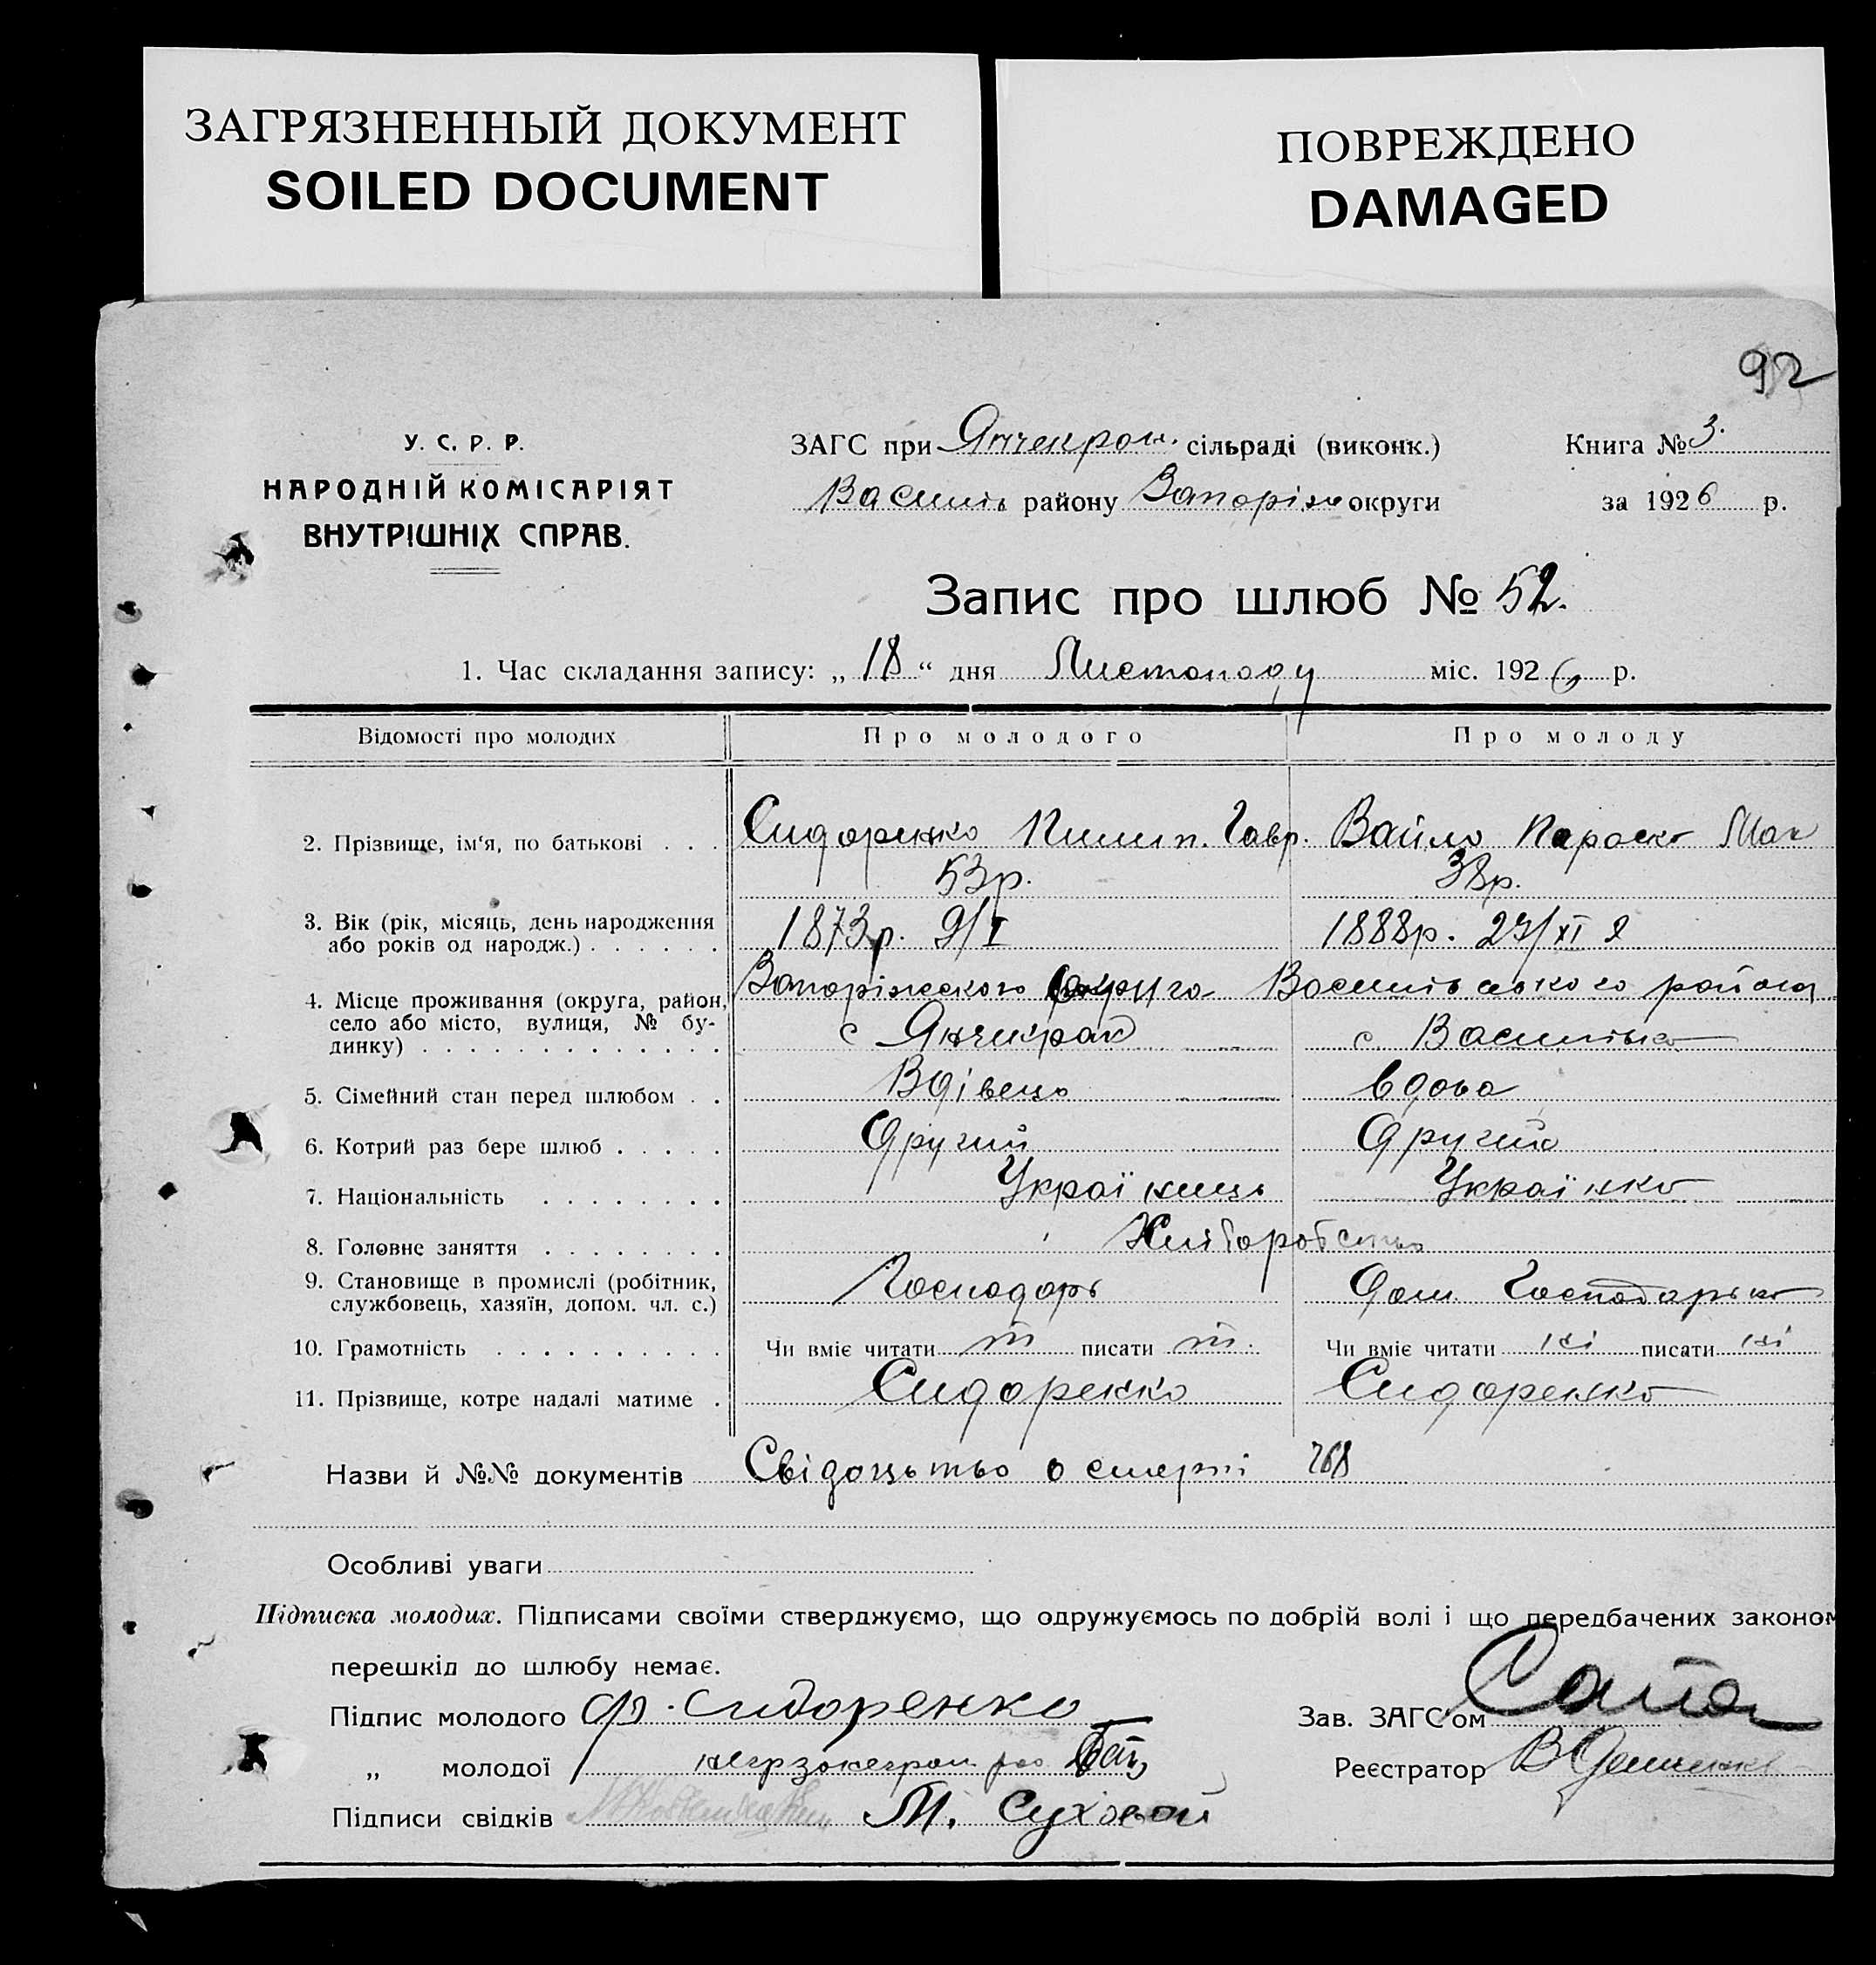 ЗАГРЯЗНЕННЫЙ ДОКУМЕНТ
SOILED DOCUMENT
ПОВРЕЖДЕНО
DAMAGED
92
У. С. Р. Р.
НАРОДНІЙ КОМІСАРІЯТ
ВНУТРІШНІХ СПРАВ.
ЗАГС при Янчекрак. сільраді (виконк.)
Василь району Запоріж округи
Книга № 3.
за 1926 р.
Запис про шлюб № 52.
1. Час складання запису: „ 18 “ дня Листопаду міс. 1926 р.
Відомості про молодих Про молодого Про молоду
2. Прізвище, ім‘я, по батькові . . . Сидоренко Пилип. Гавр. Вайло Параска Мак
53р. 38р.
3. Вік (рік, місяць, день народження
або років од народж.) . . . . . . 1873р. 9/I 1888р. 27/XI
4. Місце проживання (округа, район, Запоріжского Округа Василівського района
село або місто, вулиця, № бу-
динку) . . . . . . . . . . . . . с Янчикрак с Василівка
5. Сімейний стан перед шлюбом . . Вдівець вдова
6. Котрий раз бере шлюб . . . . . другий другий
7. Національність . . . . . . . . Українець Українка
8. Головне заняття . . . . . . . . Хліборобство
9. Становище в промислі (робітник,
службовець, хазяїн, допом. чл. с.) Господарь дом Господарька
10. Грамотність . . . . . . . . . . Чи вміє читати т писати т. Чи вміє читати ні писати ні
11. Прізвище, котре надалі матиме . Сидоренко Сидоренко
Назви й №№ документів Свідоцьтво о смерті 768
Особливі уваги
Підписка молодих. Підписами своїми стверджуємо, що одружуємось по добрій волі і що передбачених законом
перешкід до шлюбу немає.
Підпис молодого Ф. Сидоренко
Зав. ЗАГС'ом
„ молодої
Реєстратор В
Підписи свідків М. Суховой